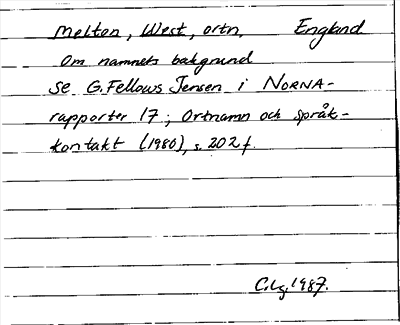 Melton, West, ortn. England
Om namnets bakgrund
se G. Fellows Jensen i NORNA-
rapporter 17; Ortnamn och språk-
kontakt (1980), s. 202 f.
C.Lg. 1987.